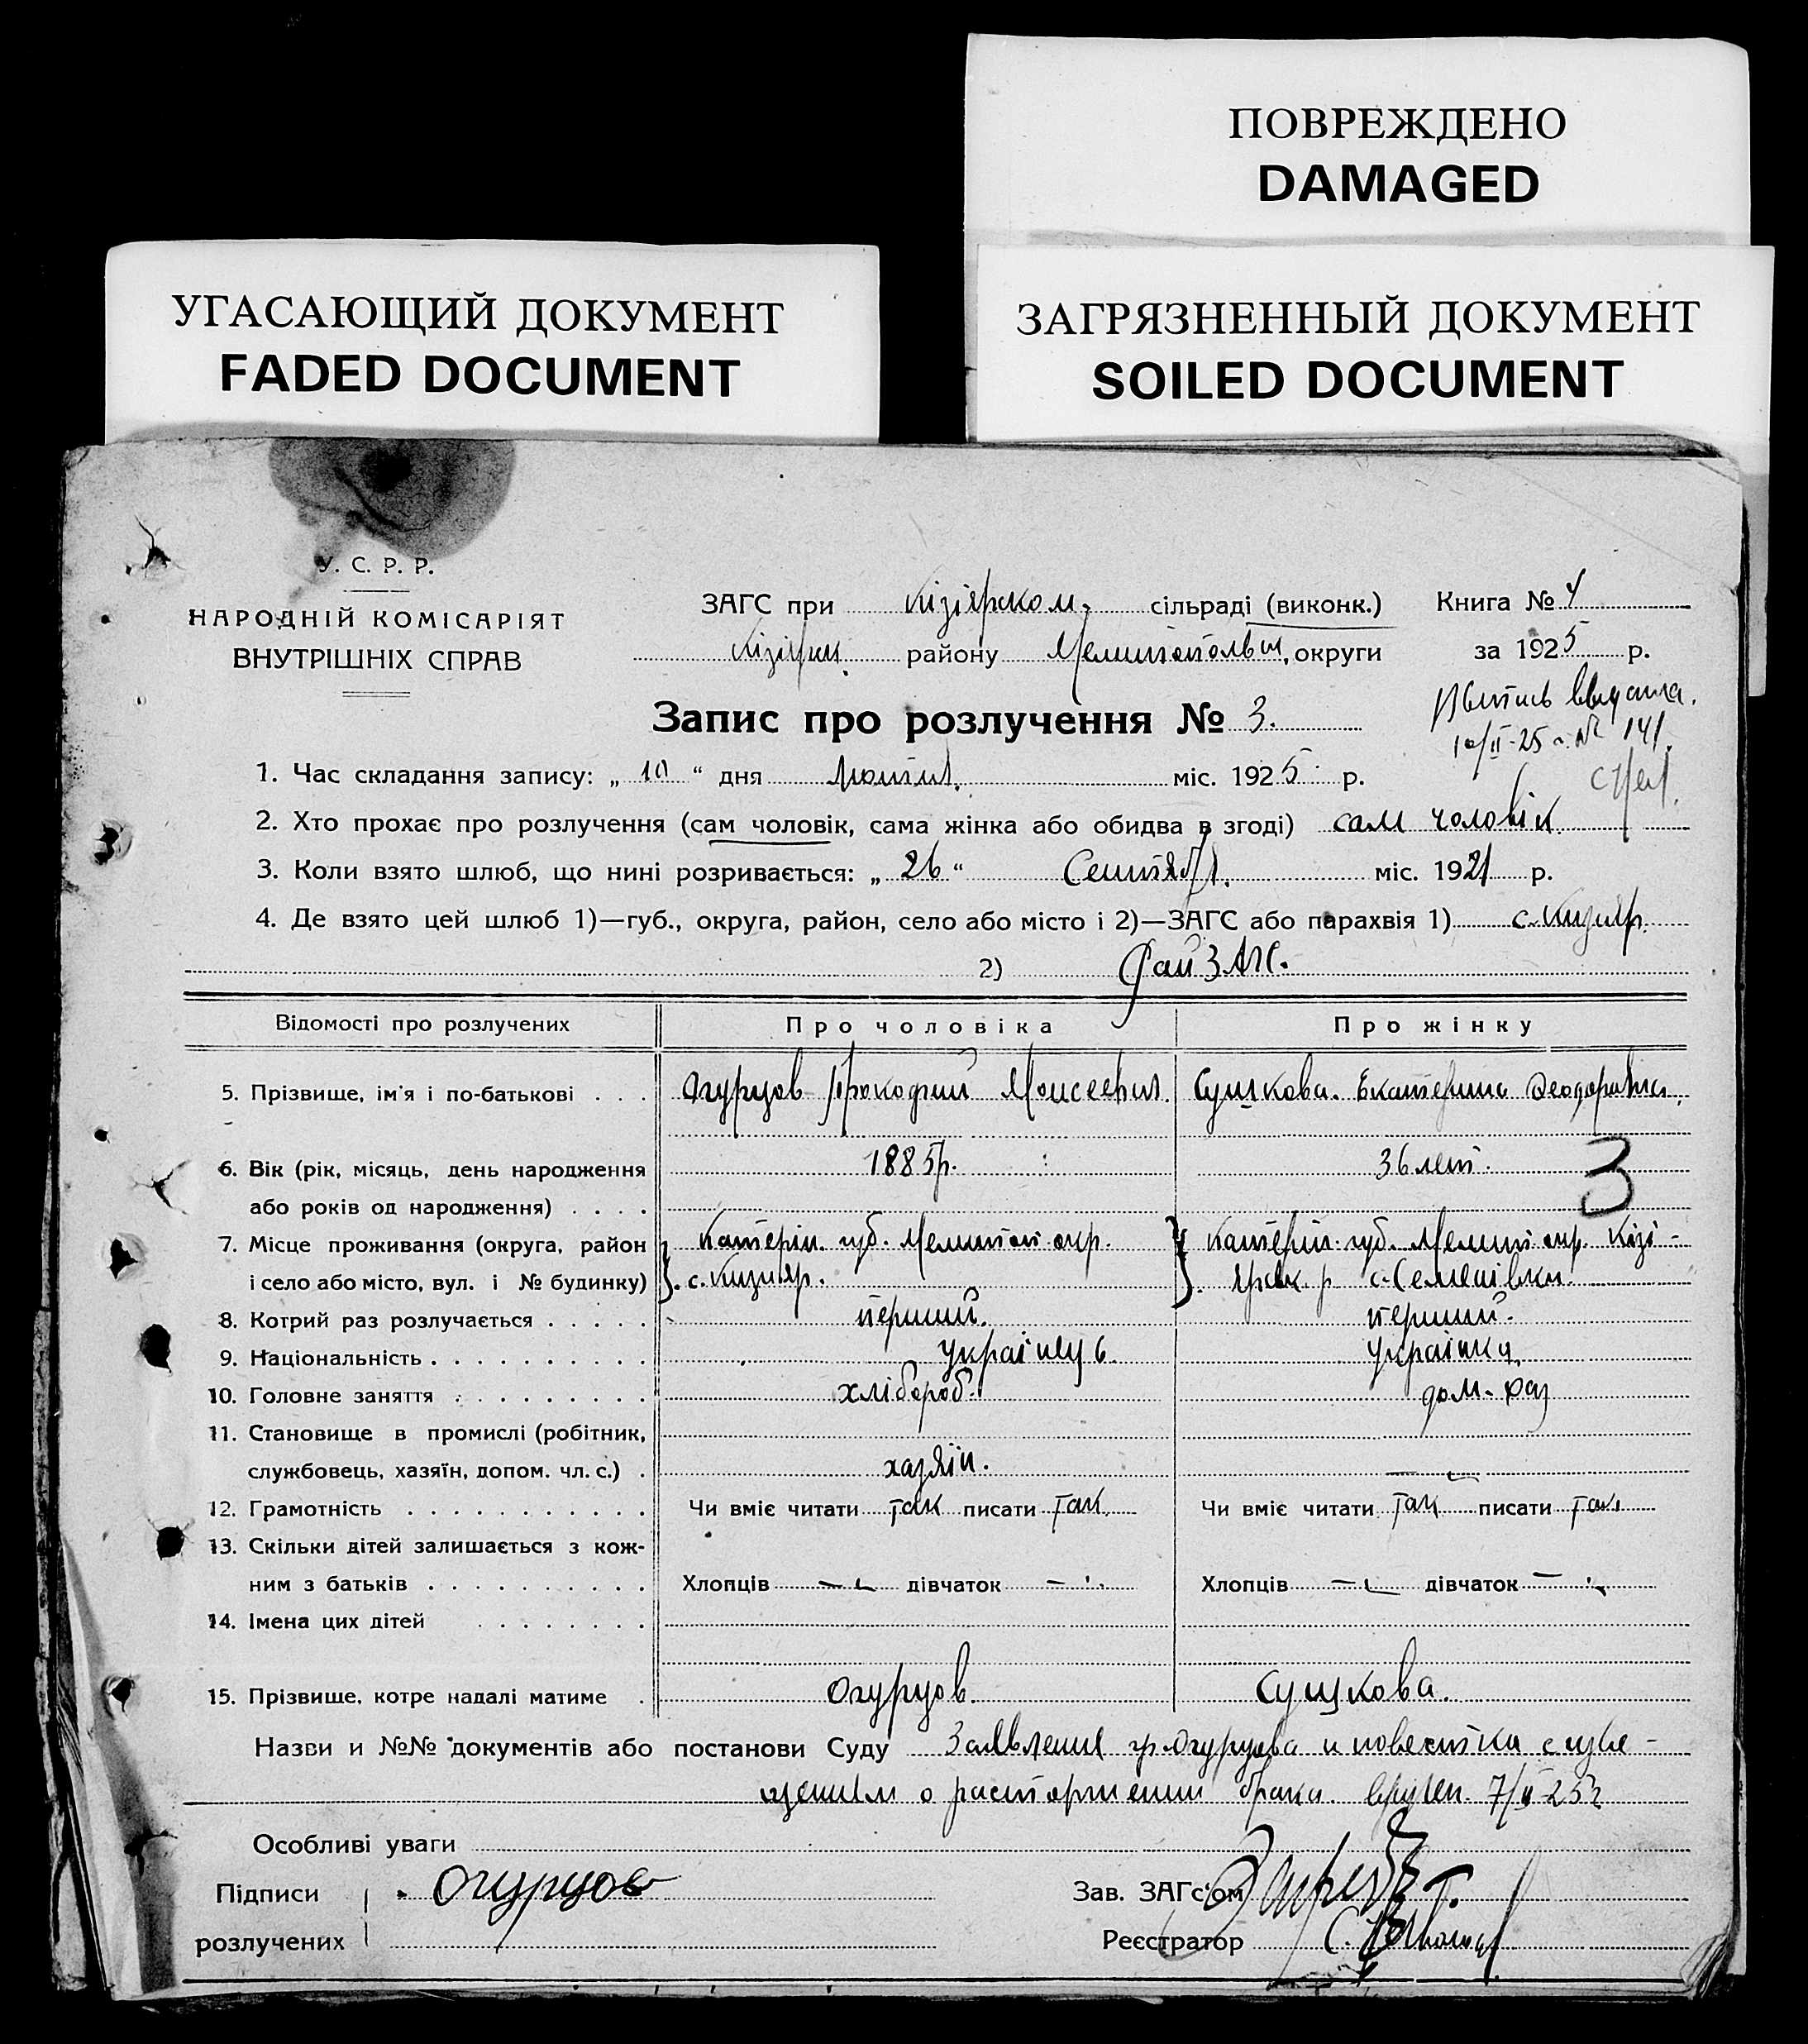 ПОВРЕЖДЕНО
DAMAGED
УГАСАЮЩИЙ ДОКУМЕНТ
FADED DOCUMENT
ЗАГРЯЗНЕННЫЙ ДОКУМЕНТ
SOILED DOCUMENT
У. С. Р. Р.
НАРОДНІЙ КОМІСАРІЯТ
ВНУТРІШНІХ СПРАВ
ЗАГС при Кізіярском, сільраді (виконк.) Книга № 4
району округи за 1925 р.
Запис про розлучення № 3.
10/II-25 г. № 141.
1. Час складання запису: „ 10 “ дня міс. 1925 р.
2. Хто прохає про розлучення (сам чоловік, сама жінка або обидва в згоді) сам чоловік
3. Коли взято шлюб, що нині розривається: „ 26 “ Сентябр. міс. 1921 р.
4. Де взято цей шлюб 1)—губ., округа, район, село або місто і 2)—ЗАГС або парахвія 1) с. Кизияр.
2) Рай ЗАГС.
Відомості про розлучених Про чоловіка Про жінку
5. Прізвище, ім'я і по-батькові . . . Огурцов Прокофий Моисеевич. Сушкова. Екатерина Феодоровна.
6. Вік (рік, місяць, день народження 1885 р. 36 лет. 3
або років од народження) . . . .
7. Місце проживання (округа, район Катерін. губ. Мелитоп. окр. Катерін. губ. Мелит. окр. Кізі-
і село або місто, вул. і № будинку) с. Кизияр. ярск. р. с. Семенівка.
8. Котрий раз розлучається . . . . . перший. перший.
9. Національність . . . . . . . . . . українець. українка.
10. Головне заняття . . . . . . . . . хлібороб. дом. хаз
11. Становище в промислі (робітник,
службовець, хазяїн, допом. чл. с.) . хазяін. —
12. Грамотність . . . . . . . . . . . Чи вміє читати так писати так. Чи вміє читати так писати так
13. Скільки дітей залишається з кож-
ним з батьків . . . . . . . . . . Хлопців — дівчаток — Хлопців — дівчаток —
14. Імена цих дітей . . . . . . . .
15. Прізвище, котре надалі матиме . Огурцов. Сушкова.
Назви и №№ документів або постанови Суду Заявление гр. Огурцова и повестка с изве-
щением о расторжении брака. вручен. 7/II-25 г
Особливі уваги
Підписи Огурцов Зав. ЗАГс'ом
розлучених Реєстратор